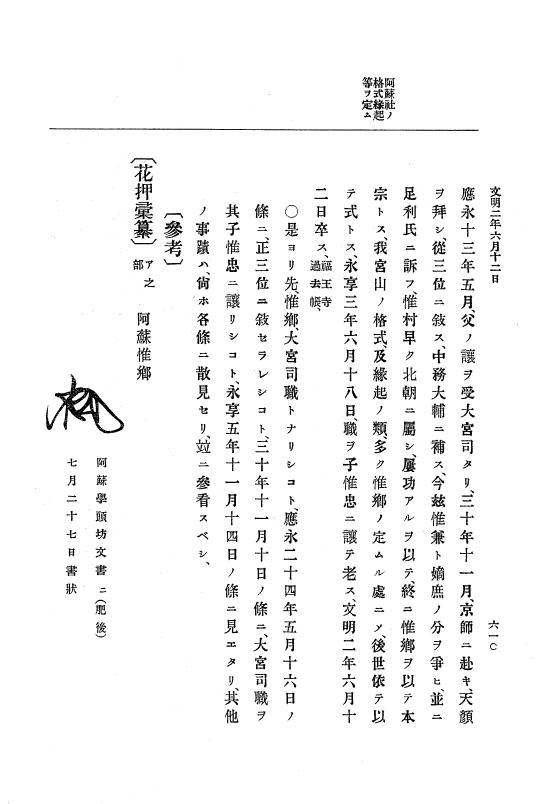 文明二年六月十二日
六一〇
阿蘇社ノ
格式緣起
等ヲ定ム
應永十三年五月、父ノ讓ヲ受大宮司タリ、三十年十一月、京師ニ赴キ、天顔
ヲ拜シ從三位ニ敍ス、中務大輔ニ補ス、今玆惟兼ト嫡庶ノ分ヲ爭ヒ、並ニ
足利氏ニ訴フ、惟村早ク北朝ニ屬シ、屢功アルヲ以テ、終ニ惟鄕ヲ以テ本
宗トス、我宮山ノ格式、及緣起ノ類、多ク惟鄕ノ定ムル處ニメ、後世依テ以
テ式トス、永享三年六月十八日、職ヲ子惟忠ニ讓テ老ス、文明二年六月十
二日卒ス、福王寺過去帳、
〇是ヨリ先、惟鄕、大宮司職トナリシコト、應永二十四年五月十六日ノ
條ニ、正三位ニ敍セラレシコト、三十年十一月十日ノ條ニ、大宮司職ヲ
其子惟忠ニ讓リシコト、永享五年十一月十四日ノ條ニ見エタリ、其他
ノ事蹟ハ、尙ホ各條ニ散見セリ、竝ニ參看スベシ、
〔參考〕
〔花押彙纂〕ア之部 阿蘇惟鄕
阿蘇學頭坊文書ニ(肥後)
七月二十七日書狀